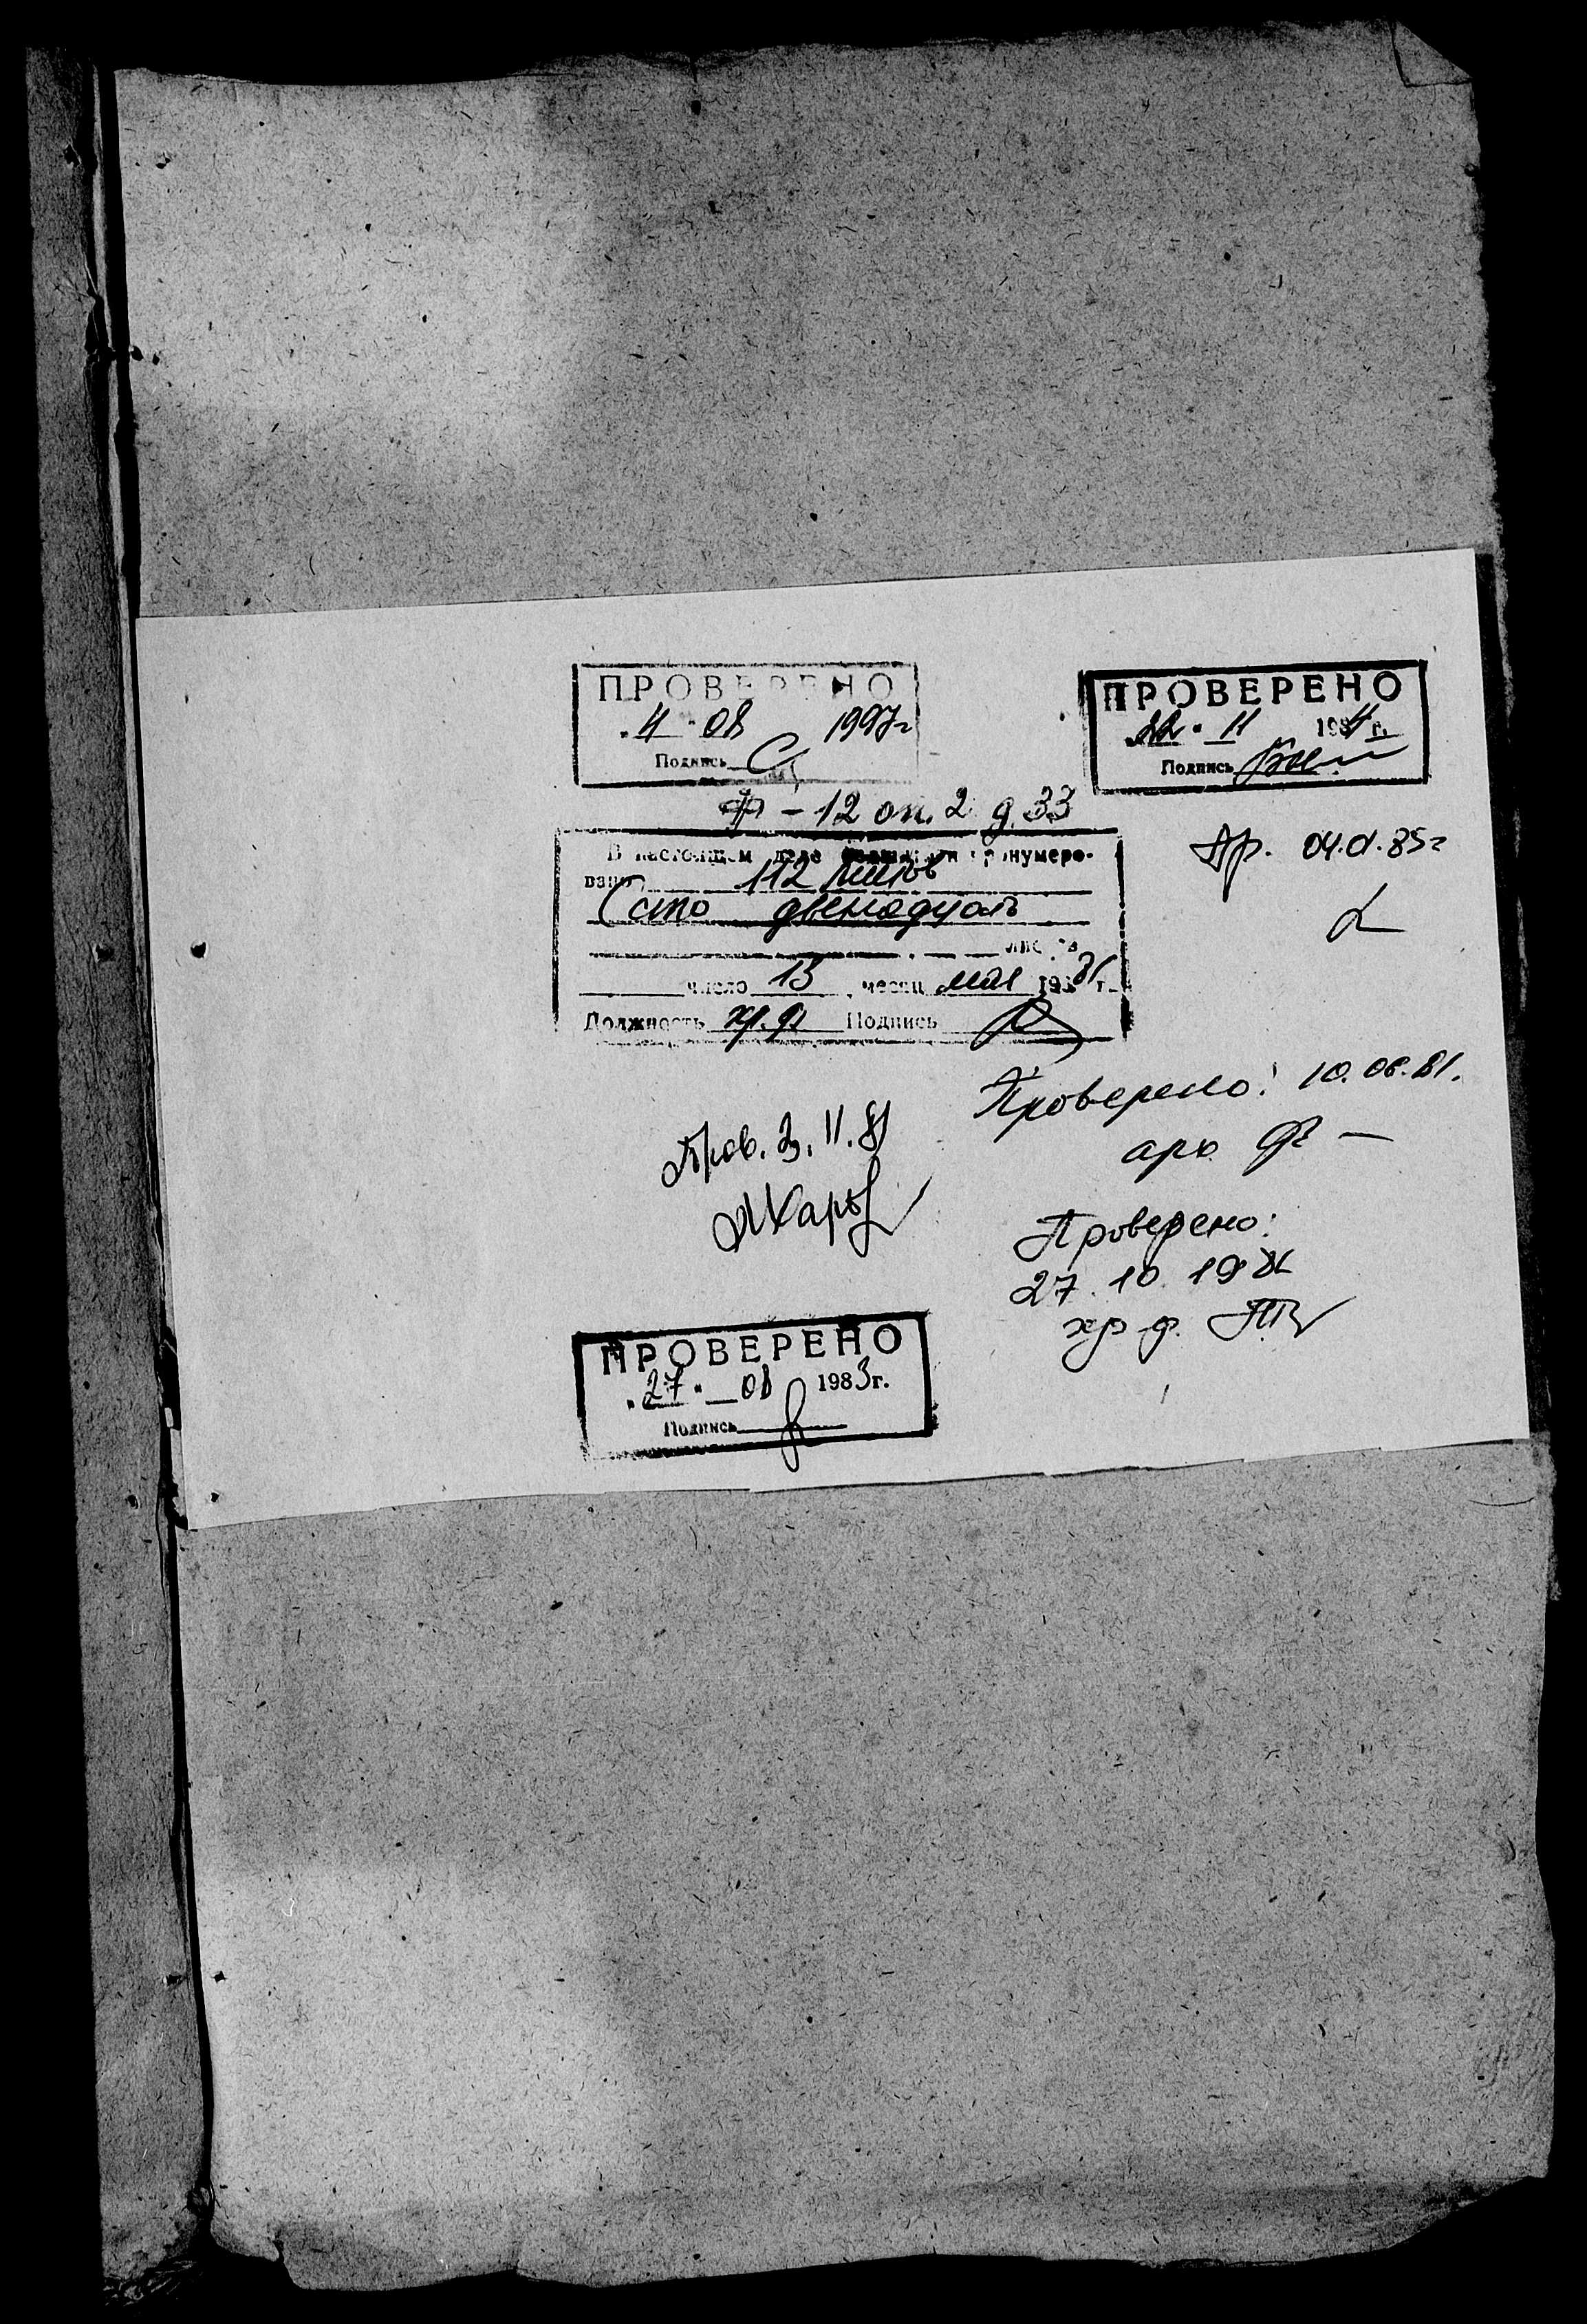 ПРОВЕРЕНО
"4" 08 1997г
Подпись
ПРОВЕРЕНО
"22" 11 1984 г.
Подпись
Ф-12 оп. 2 д. 33
Пр. 04.01.85г
В настоящем деле подшито и пронумеро-
вано 112 листов
(сто двенадцать
листов
число 13 месяц мая 1981 г.
Должность хр.ф Подпись
Проверено: 10.06.81.
арх.
Пров. 3.11.81
Проверено:
27.10.1981
хр ф.
ПРОВЕРЕНО
"27" 08 1983г.
Подпись